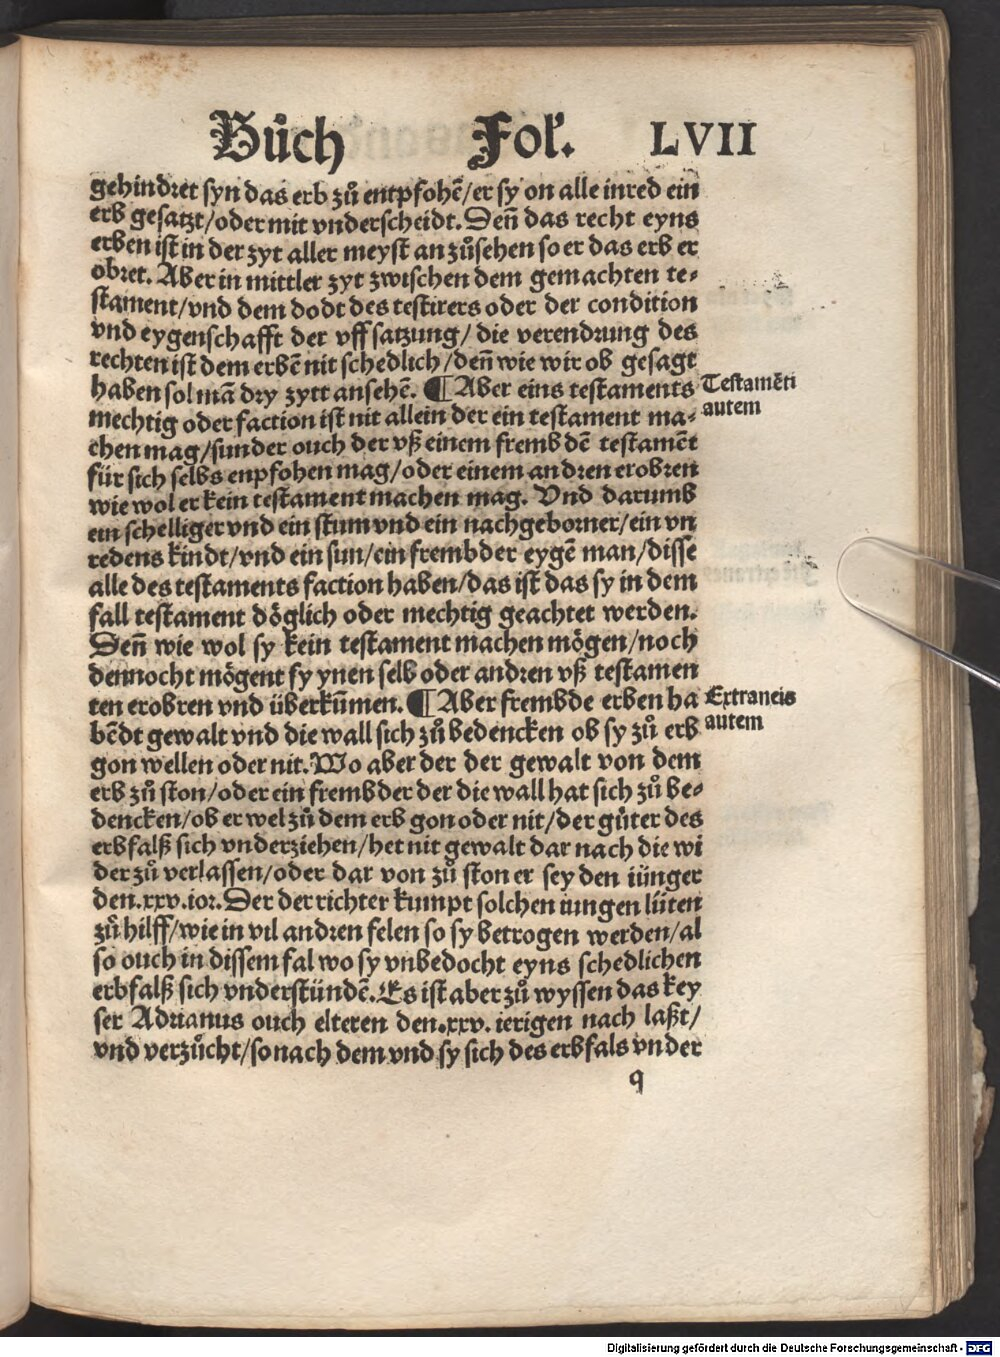 Bůch Fol. LVII
gehindret syn das erb zů entpfohē/er sy on alle inred ein
erb gesatzt/oder mit vnderscheidt. Deñ das recht eyns
erben ist in der zyt aller meyst an zůsehen so er das erb er
obret. Aber in mittler zyt zwischen dem gemachten te-
stament/vnd dem dodt des testirers oder der condition
vnd eygenschafft der vff satzung/ die verendrung des
rechten ist dem erbē nit schedlich/deñ wie wir ob gesagt
haben sol mā dry zytt ansehē. ¶ Aber eins testaments
Testamēti
autem
mechtig oder faction ist nit allein der ein testament ma-
chen mag/sunder ouch der vß einem frembdē testamēt
für sich selbs enpfohen mag/oder einem andren erobren
wie wol er kein testament machen mag. Vnd darumb
ein schelliger vnd ein stum vnd ein nachgeborner/ein vn
redens kindt/vnd ein sun/ein frembder eygē man/disse
alle des testaments faction haben/das ist das sy in dem
fall testament döglich oder mechtig geachtet werden.
Deñ wie wol sy kein testament machen mögen/noch
dennocht mögent sy ynen selb oder andren vß testamen
ten erobren vnd überkūmen. ¶ Aber frembde erben ha
Extraneis
autem
bēdt gewalt vnd die wall sich zů bedencken ob sy zů erb
gon wellen oder nit. Wo aber der der gewalt von dem
erb zů ston/oder ein frembder der die wall hat sich zů be-
dencken/ob er wel zů dem erb gon oder nit/der gůter des
erbfalß sich vnderziehen/het nit gewalt dar nach die wi
der zů verlassen/oder dar von zů ston er sey den iünger
den.xxv.ior. Der der richter kumpt solchen iungen lüten
zů hilff/wie in vil andren felen so sy betrogen werden/al
so ouch in dissem fal wo sy vnbedocht eyns schedlichen
erbfalß sich vnderstündē. Es ist aber zů wyssen das key
ser Adrianus ouch elteren den.xxv. ierigen nach laßt/
vnd verzůcht/so nach dem vnd sy sich des erbfals vnder
q
Digitalisierung gefördert durch die Deutsche Forschungsgemeinschaft - DFG